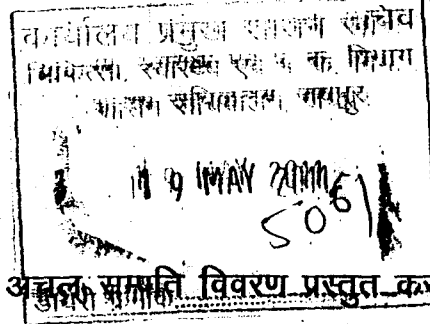 कार्यालय प्रमुख शासन सचिव
चिकित्सा, स्वास्थ्य एवं प. क. विभाग
शासन सचिवालय, जयपुर
19 MAY
5061
अचल सम्पति विवरण प्रस्तुत